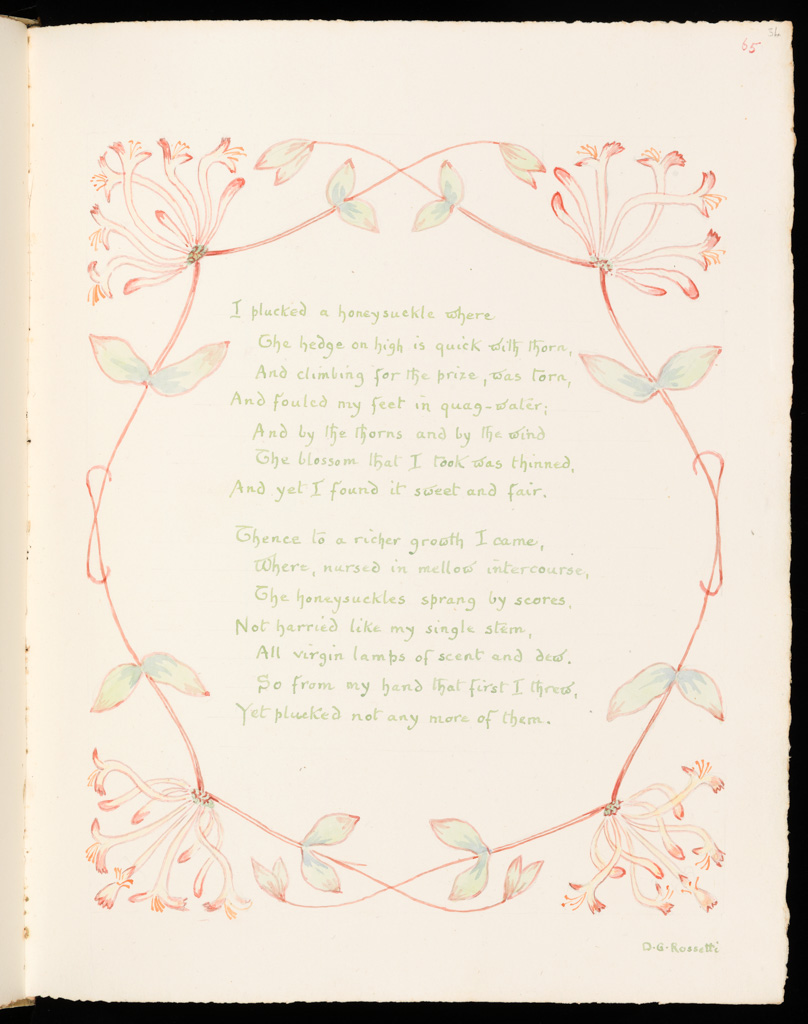 56
65
I plucked a honeysuckle where
The hedge on high is quick with thorn,
And climbing for the prize, was torn,
And fouled my feet in quag-water;
And by the thorns and by the wind
The blossom that I took was thinned,
And yet I found it sweet and fair.
Thence to a richer growth I came,
Where, nursed in mellow intercourse,
The honeysuckles sprang by scores,
Not harried like my single stem,
All virgin lamps of scent and dew.
So from my hand that first I threw,
Yet plucked not any more of them.
D·G·Rossetti